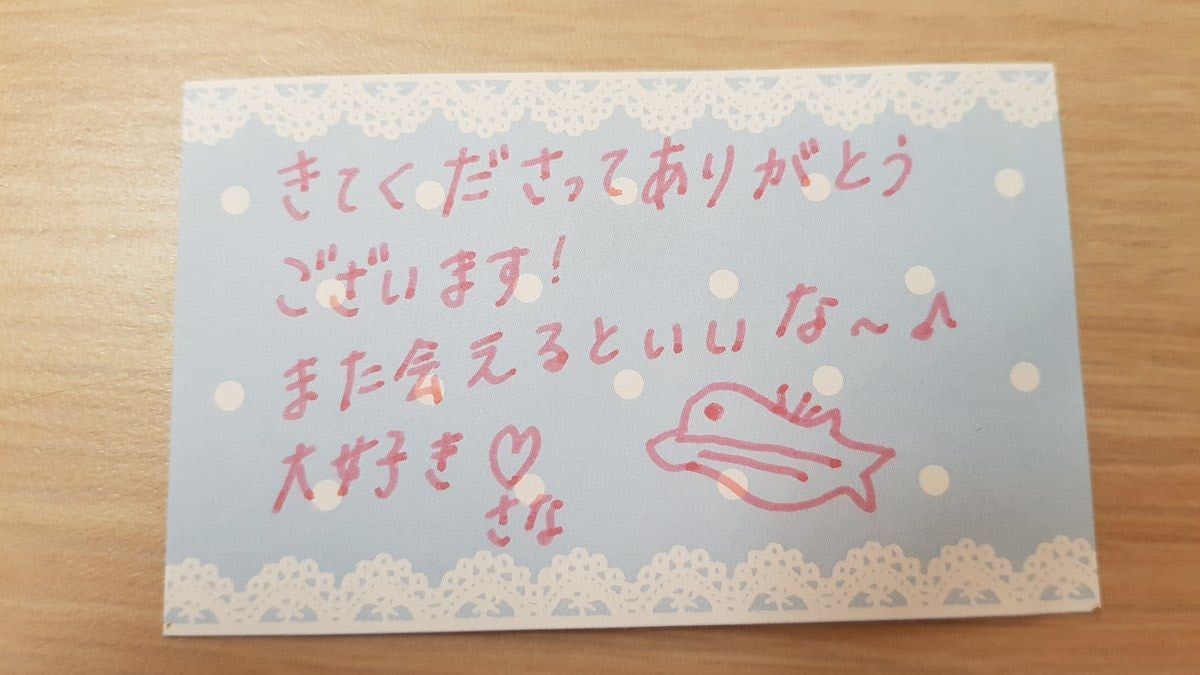 きてくださってありがとう
ございます!
また会えるといいな〜♪
大好き♡
さな